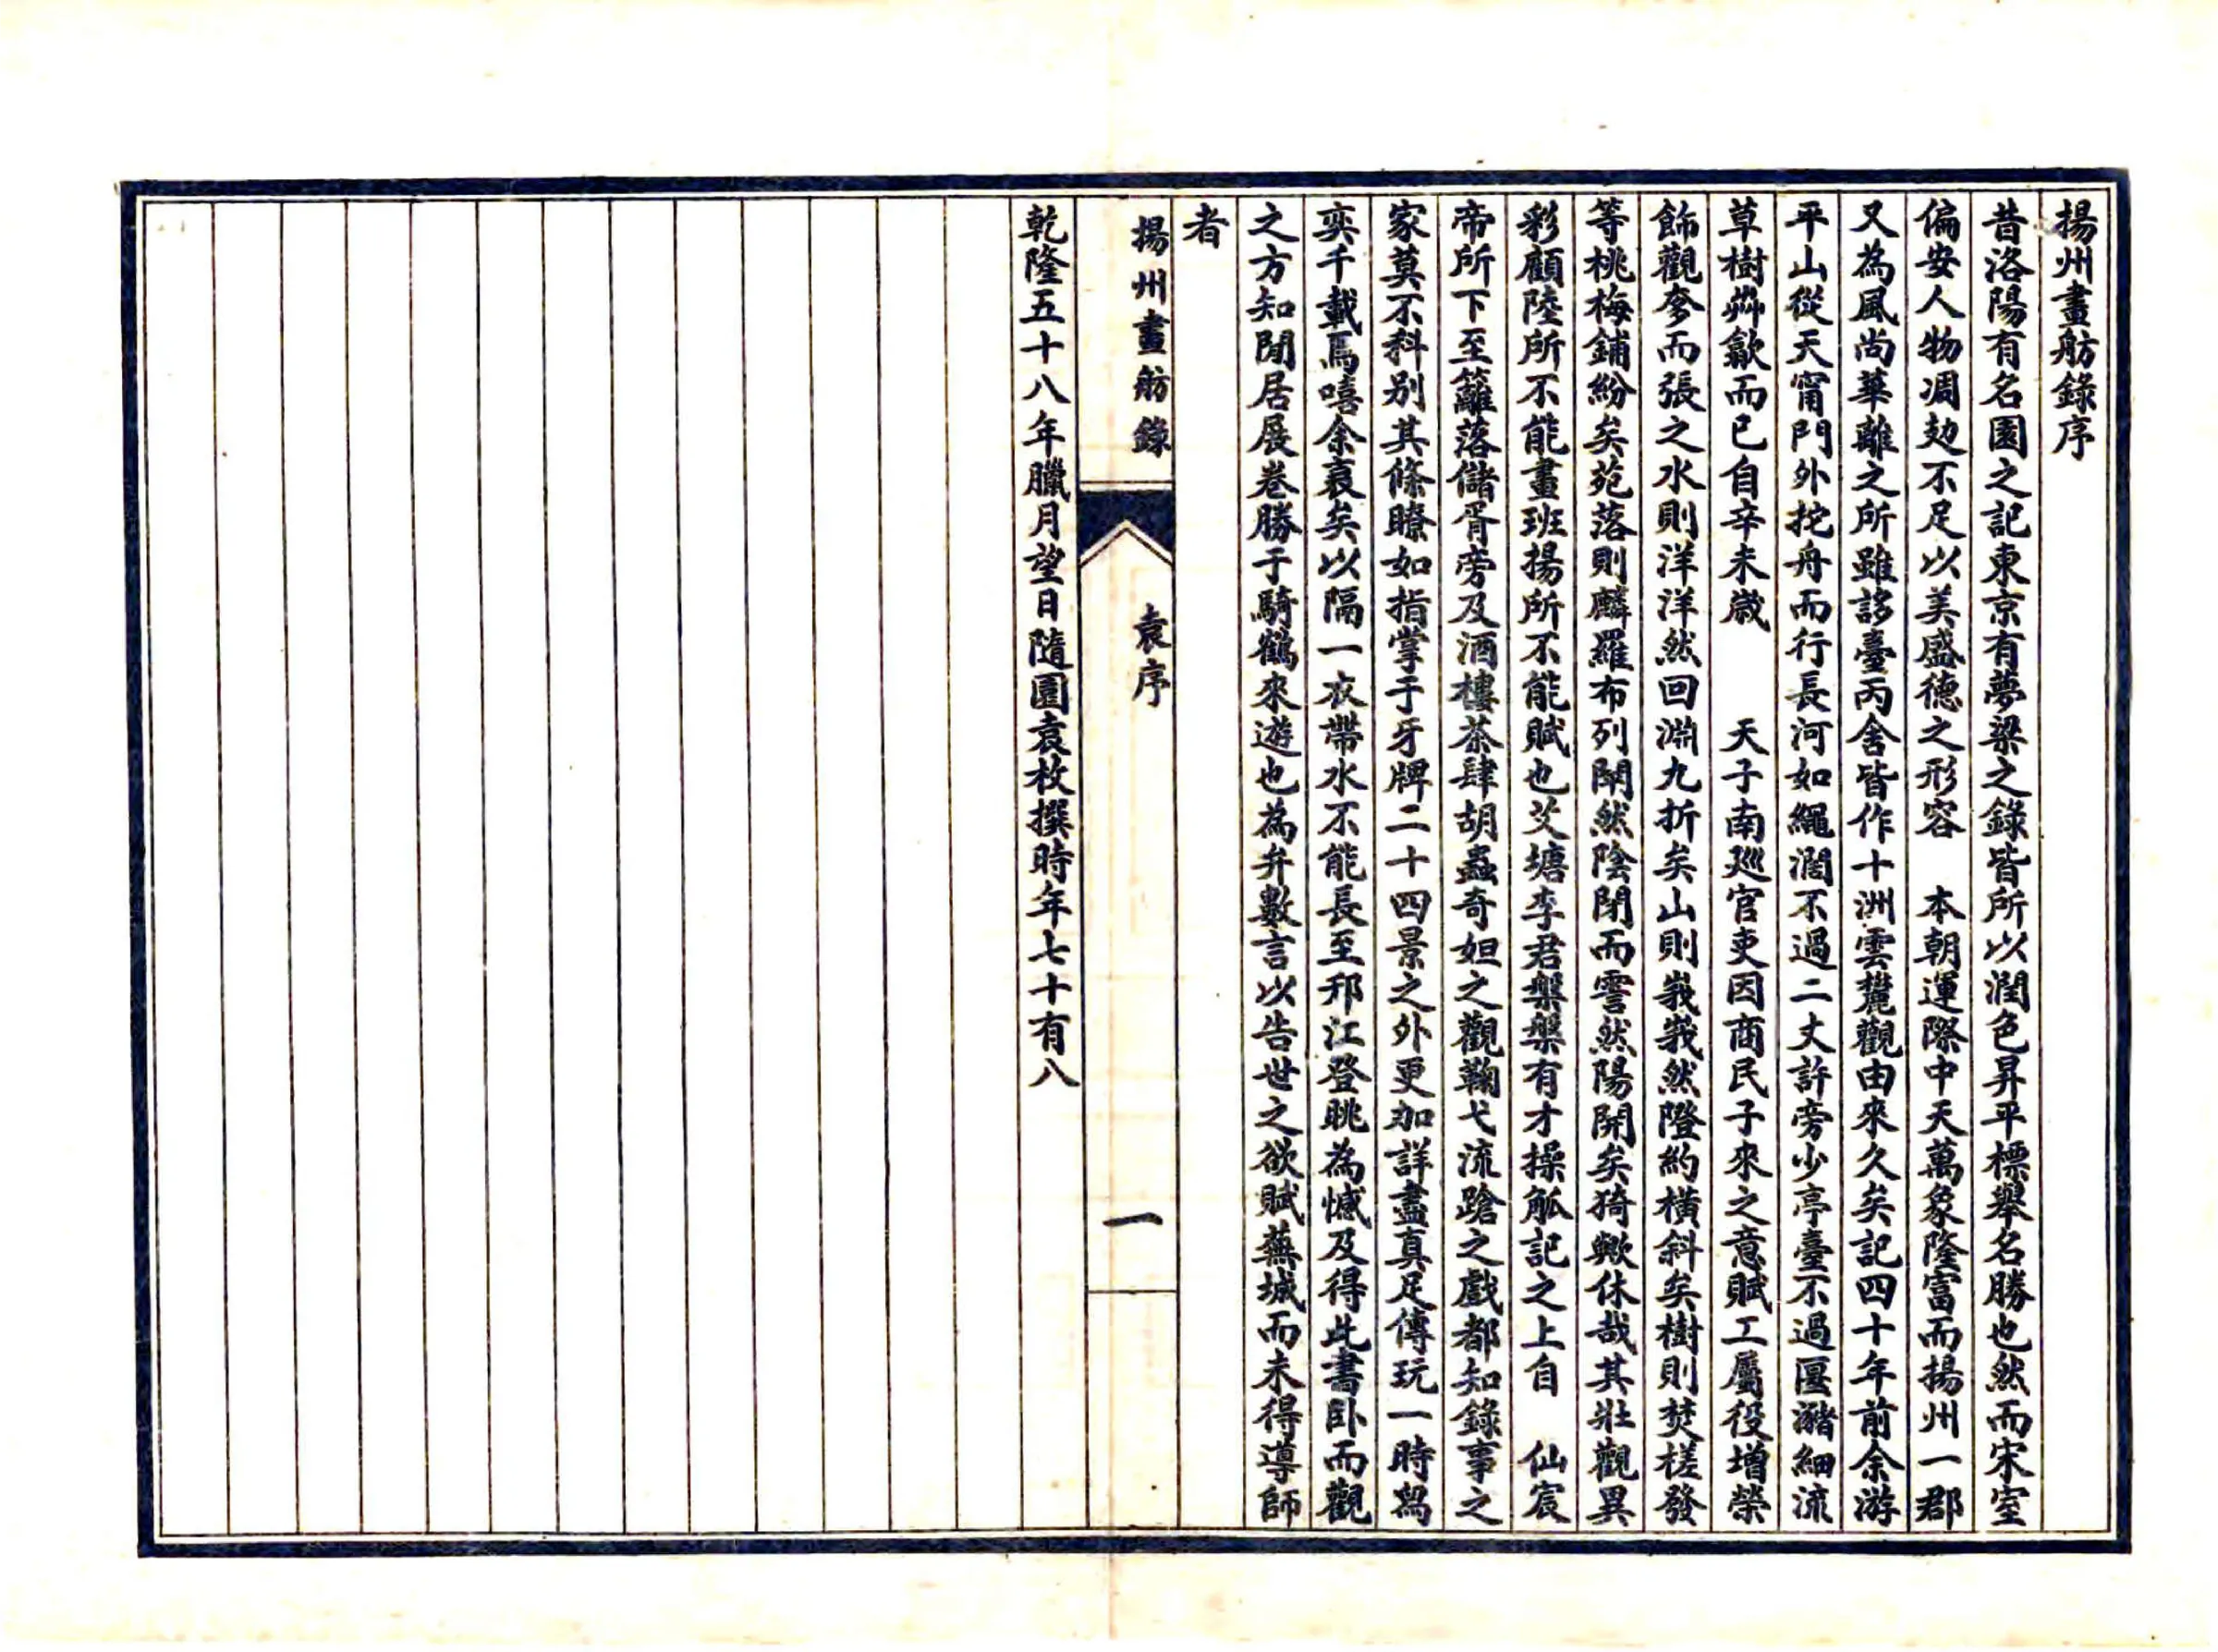 揚州畫舫錄序
昔洛陽有名園之記東京有夢梁之錄皆所以潤色昇平標舉名勝也然而宋室
偏安人物凋攰不足以美盛德之形容　本朝運際中天萬象隆富而揚州一郡
又為風尚華離之所雖誃臺丙舍皆作十洲雲麓觀由來久矣記四十年前余游
平山從天甯門外拕舟而行長河如繩濶不過二丈許旁少亭臺不過匽潴細流
草樹卉歙而已自辛未歲　天子南巡官吏因商民子來之意賦工屬役增榮
飾觀奓而張之水則洋洋然回淵九折矣山則峩峩然隥約橫斜矣樹則焚槎發
等桃梅鋪紛矣苑落則麟羅布列閈然陰閉而霅然陽開矣猗歟休哉其壯觀異
彩顧陸所不能畫班揚所不能賦也艾塘李君槃槃有才操觚記之上自　仙宸
帝所下至籬落儲胥旁及酒樓茶肆胡蟲奇妲之觀鞠弋流蹌之戲都知錄事之
家莫不科別其條瞭如指掌于牙牌二十四景之外更加詳盡真足傳玩一時舄
奕千載焉嘻余衰矣以隔一衣帶水不能長至邗江登眺為憾及得此書臥而觀
之方知閒居展卷勝于騎鶴來遊也為弁數言以告世之欲賦蕪城而未得導師
者
揚州畫舫錄　袁序　一
乾隆五十八年臘月望日隨園袁枚撰時年七十有八